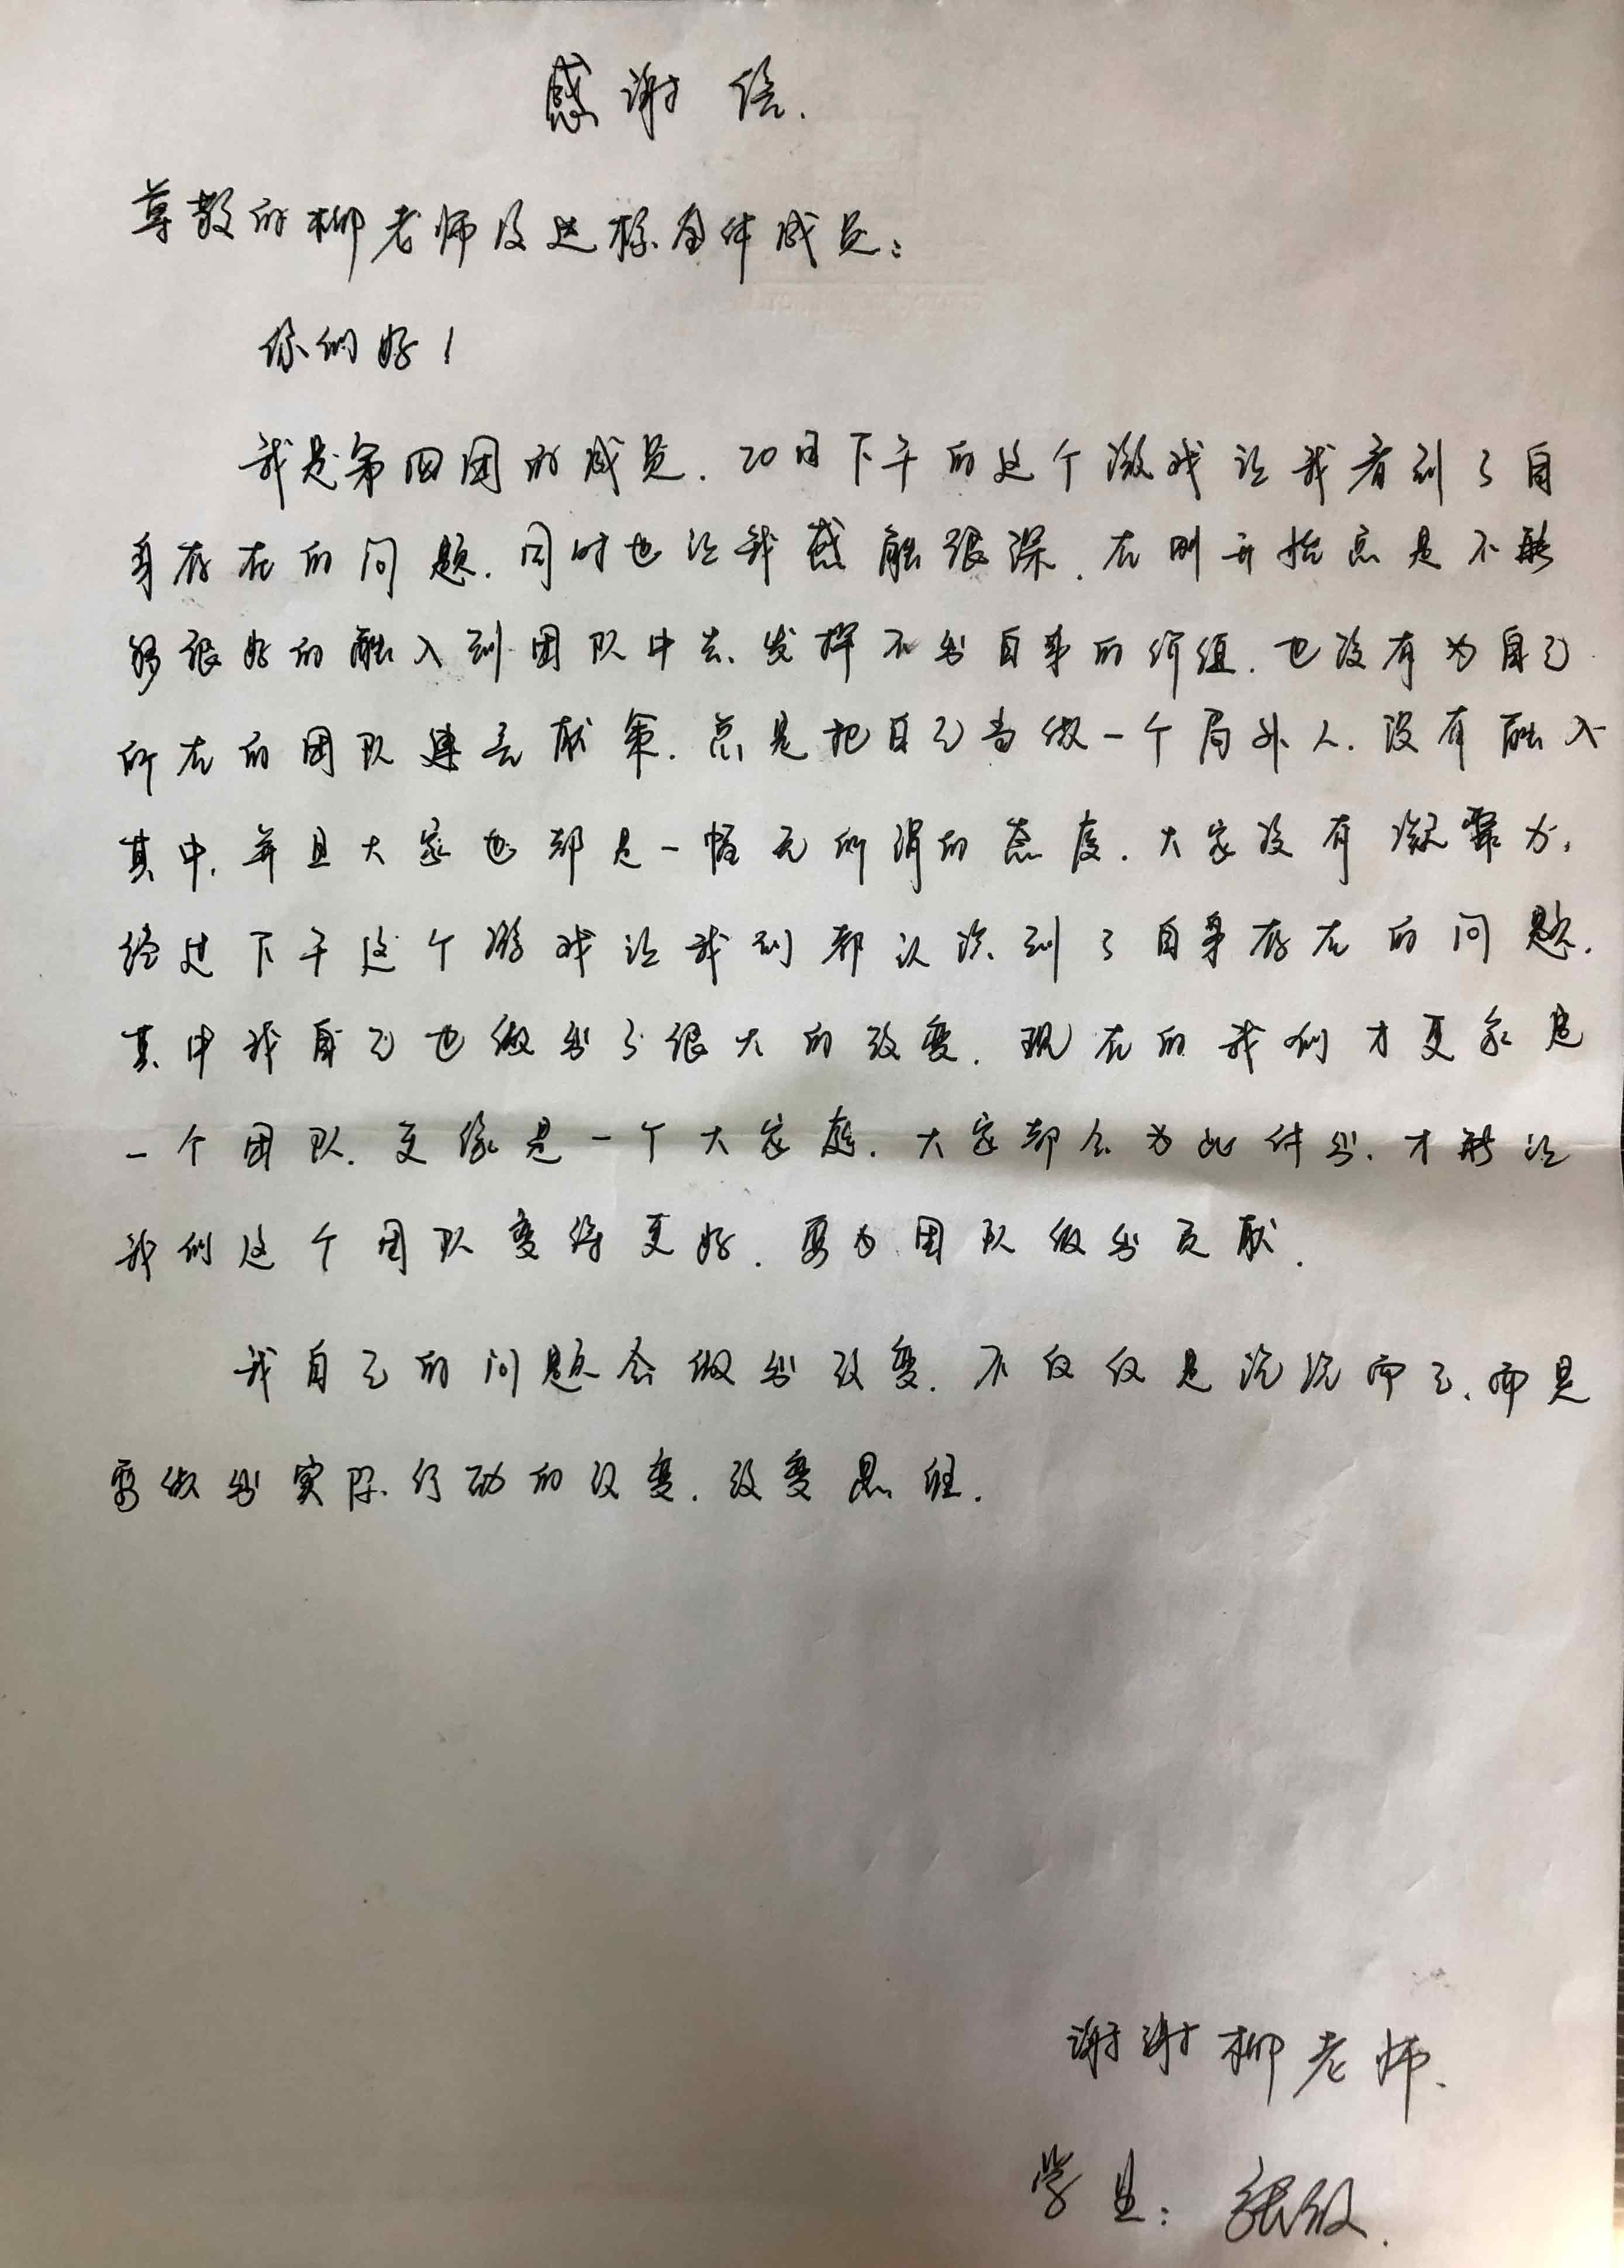 感谢信.
尊敬的柳老师及达标全体成员：
你们好！
我是第四团的成员. 20日下午的这个游戏让我看到了自
身存在的问题. 同时也让我感触很深. 在刚开始总是不能
够很好的融入到团队中去、发挥不出自身的价值. 也没有为自己
所在的团队建言献策. 总是把自己当做一个局外人. 没有融入
其中. 并且大家也都是一幅无所谓的态度. 大家没有凝聚力.
经过下午这个游戏让我们都认识到了自身存在的问题.
其中我自己也做出了很大的改变. 现在的我们才更象是
一个团队. 更像是一个大家庭. 大家都会为此付出. 才能让
我们这个团队变得更好. 要为团队做出贡献.
我自己的问题会做出改变. 不仅仅是说说而已、而是
要做出实际行动的改变. 改变思维.
谢谢柳老师.
学员：张